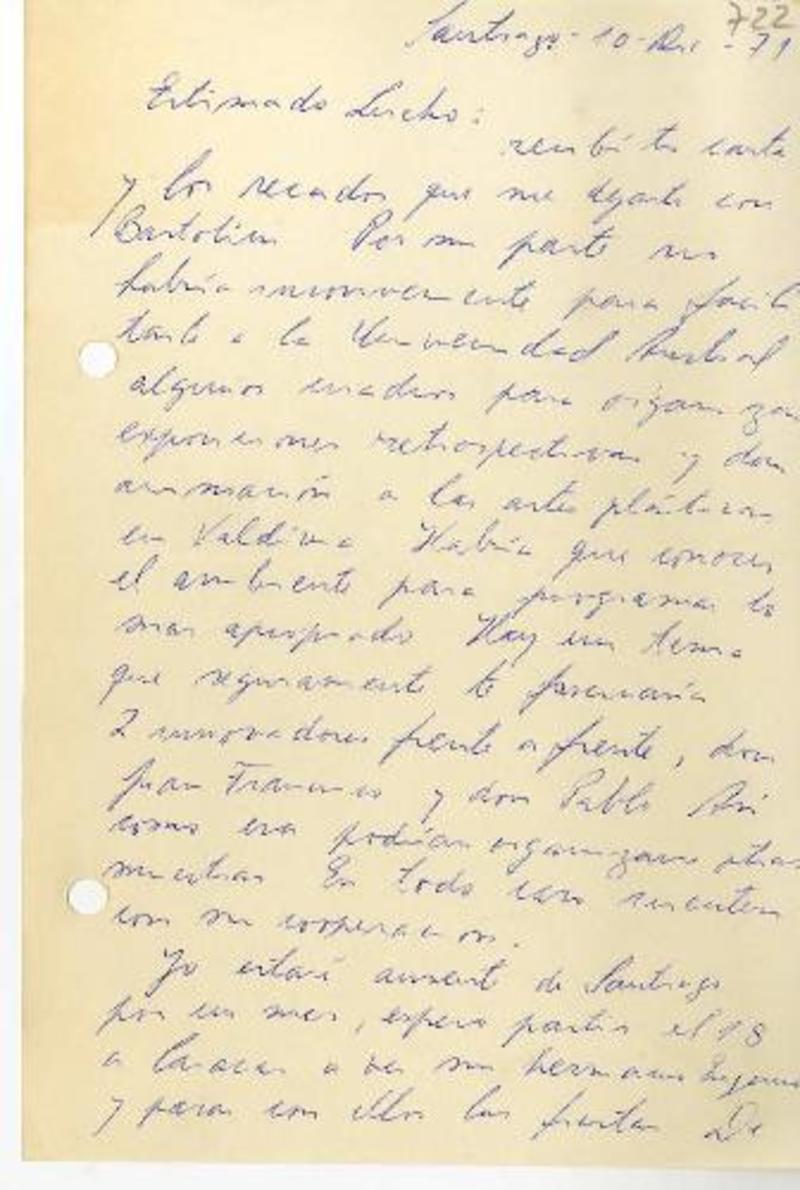 722
Santiago - 10 - Dic - 71
Estimado Lucho:
recibí tu carta
y los recados que me dejaste con
Bartolin Por mi parte no
habría inconveniente para facili
tarle a la Universidad Austral
algunos cuadros para organizar
exposiciones retrospectivas y dar
animación a las artes plásticas
en Valdivia Habría que conocer
el ambiente para programar lo
mas apropiado Hay un tema
que seguramente te
2 innovadores frente a frente, don
Juan Francisco y don Pablo Así
como esa podrían organizarse otras
muestras En todo caso cuenten
con mi cooperación.
Yo estaré ausente de Santiago
por un mes, espero partir el 18
a Caracas a ver mi hermano Eugenio
y pasar con ellos las fiestas De